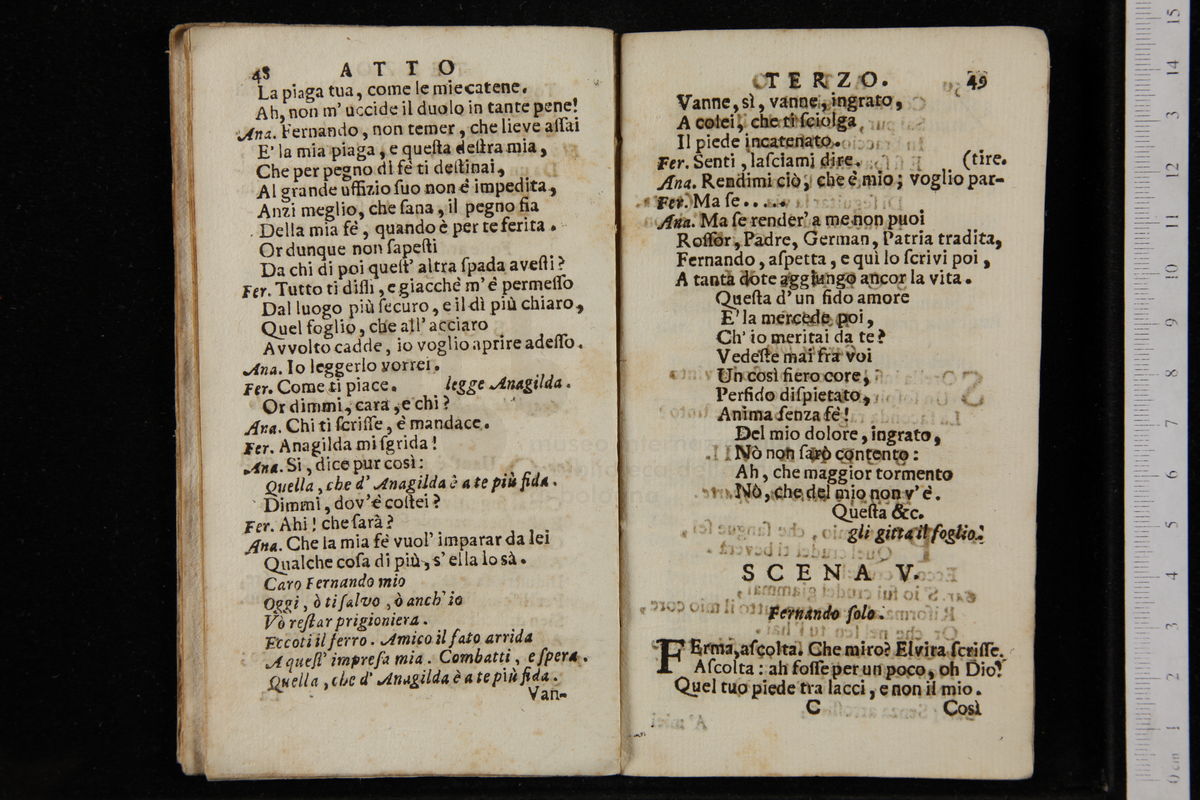 48 ATTO
La piaga tua, come le mie catene.
Ah, non m' uccide il duolo in tante pene!
Ana. Fernando, non temer, che lieve aſſai
E' la mia piaga, e queſta deſtra mia,
Che per pegno di fè ti deſtinai,
Al grande uffizio ſuo non è impedita,
Anzi meglio, che ſana, il pegno fia
Della mia fè, quando è per te ferita.
Or dunque non ſapeſti
Da chi di poi queſt' altra ſpada aveſti?
Fer. Tutto ti diſſi, e giacchè m' è permeſſo
Dal luogo più ſecuro, e il dì più chiaro,
Quel foglio, che all' acciaro
Avvolto cadde, io voglio aprire adeſſo.
Ana. Io leggerlo vorrei.
Fer. Come ti piace. legge Anagilda.
Or dimmi, cara, e chi?
Ana. Chi ti ſcriſſe, è mandace.
Fer. Anagilda mi ſgrida!
Ana. Si, dice pur così:
Quella, che d' Anagilda è a te più fida.
Dimmi, dov' è coſtei?
Fer. Ahi! che ſarà?
Ana. Che la mia fè vuol' imparar da lei
Qualche coſa di più, s' ella lo sà.
Caro Fernando mio
Oggi, ò ti ſalvo, ò anch' io
Vò reſtar prigioniera.
Eccoti il ferro. Amico il fato arrida
A queſt' impreſa mia. Combatti, e ſpera.
Quella, che d' Anagilda è a te più fida.
Van-
TERZO. 49
Vanne, sì, vanne, ingrato,
A colei, che ti ſciolga
Il piede incatenato.
Fer. Senti, laſciami dire. (tire.
Ana. Rendimi ciò, che è mio; voglio par-
Fer. Ma ſe.....
Ana. Ma ſe render' a me non puoi
Roſſor, Padre, German, Patria tradita,
Fernando, aſpetta, e quì lo ſcrivi poi,
A tanta dote aggiungo ancor la vita.
Queſta d' un fido amore
E' la mercede poi,
Ch' io meritai da te?
Vedeſte mai fra voi
Un così fiero core,
Perfido diſpietato,
Anima ſenza fè!
Del mio dolore, ingrato,
Nò non ſarò contento:
Ah, che maggior tormento
Nò, che del mio non v' è.
Queſta &c.
gli gitta il foglio.
SCENA V.
Fernando ſolo.
FErma, aſcolta. Che miro? Elvira ſcriſſe.
Aſcolta: ah foſſe per un poco, oh Dio!
Quel tuo piede tra lacci, e non il mio.
C Così